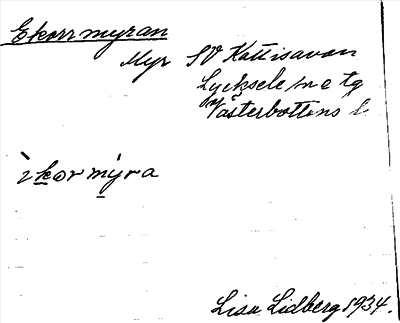 Ekorrmyran
Myr SV Kattisavan
Lycksele sn o tg
Västerbottens l.
ìkor mýra
Lisa Lidberg 1934.